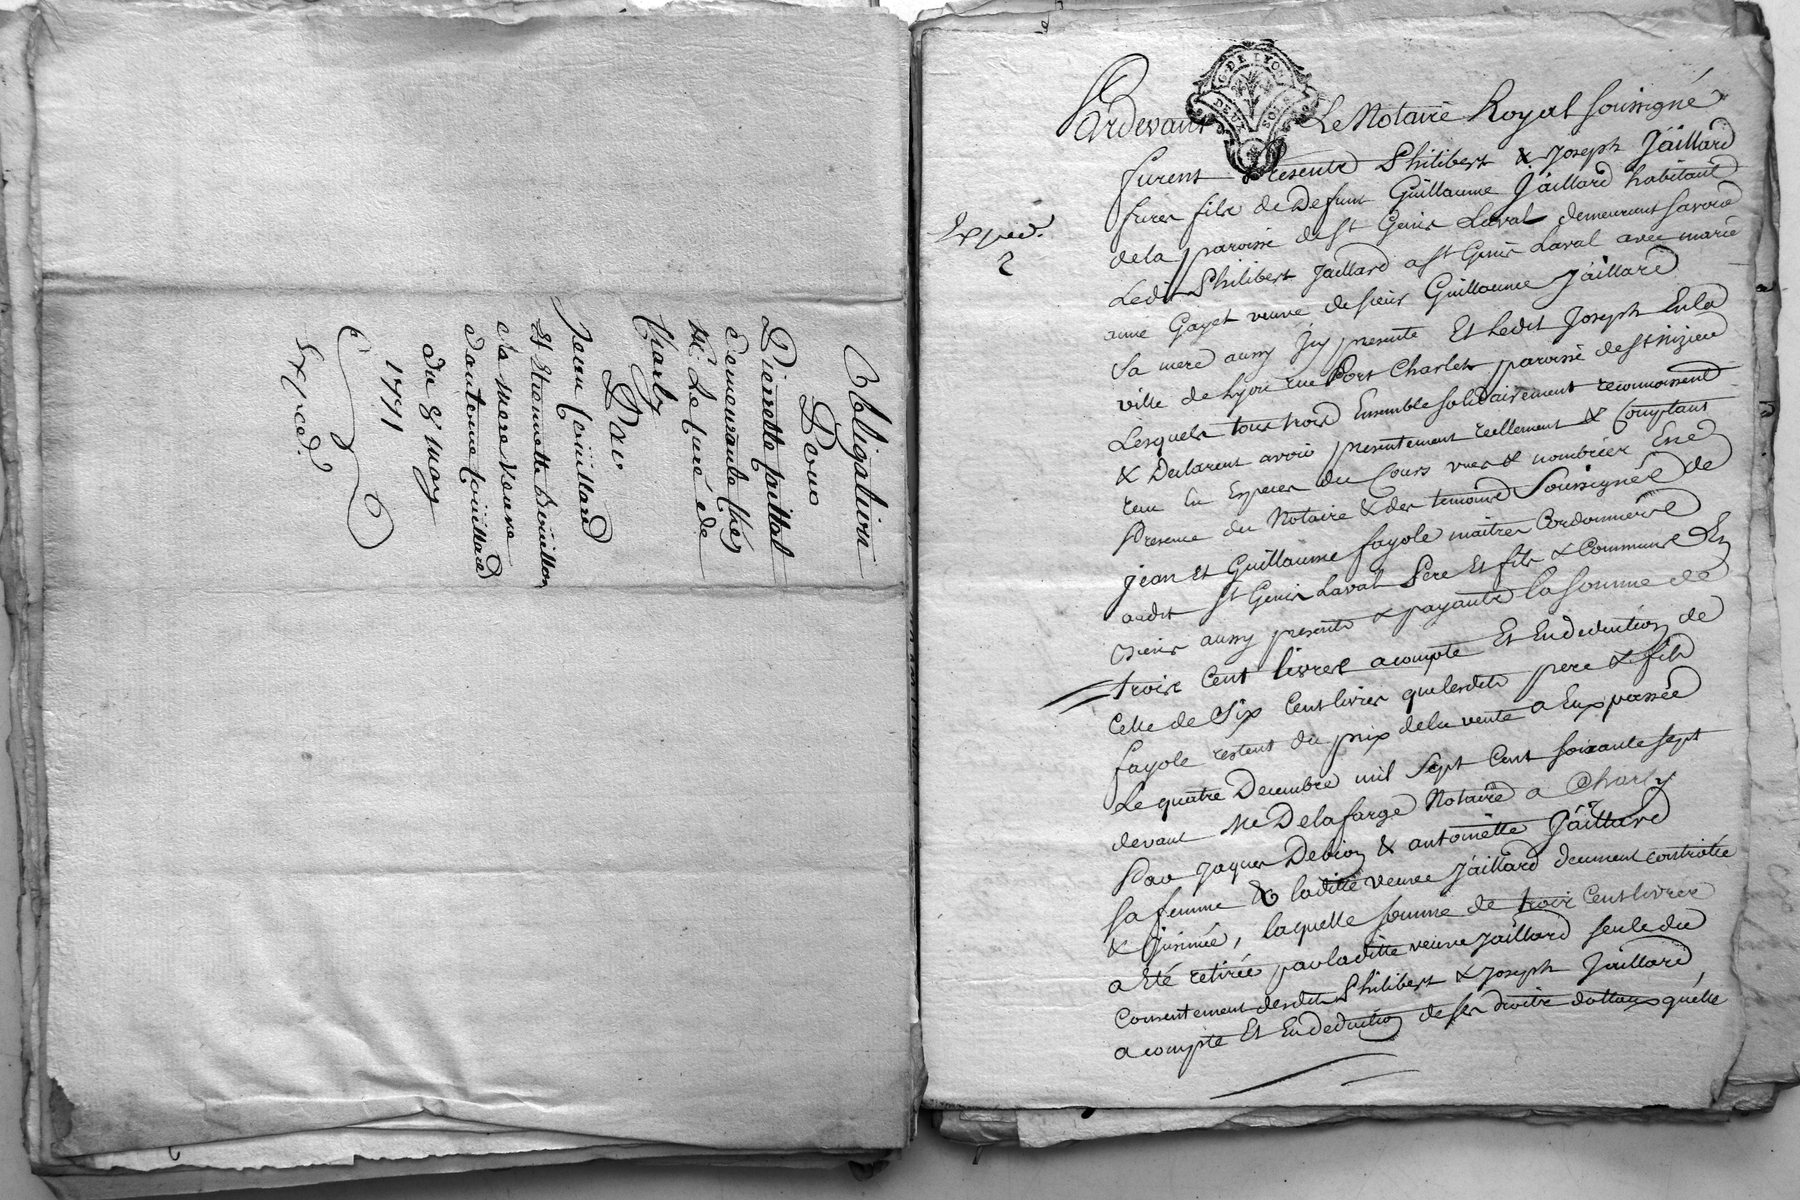 Obligation
Pour
Pierrette
demeurante chés
Mr. Le Curé de
Charly
Par
Jean
Et Etiennette
sa mere veuve
d'antoine
du 8 may
1771
Exped.
G. DE LYON
DEUX SOLS
Pardevant Le Notaire Royal soussigné
furent présents Philibert & Joseph Jaillard
freres fils de Defunt Guillaume Jaillard habitants
de la paroisse de St Genis Laval demeurant savoir
Exped.
2
Ledit Philibert Jaillard a St Genis Laval avec marie
anne Gayet veuve de sieur Guillaume Jaillard
Sa mere aussy icy presente Et Ledit Joseph En la
ville de Lyon rue Port Charlet paroisse de St Nizier
Lesquels tous trois Ensemble solidairement reconnoissent
& Declarent avoir presentement reellement & Comptant
recu En Especes du Cours vues & nombrées En
Presence du Notaire & des temoins Soussignés de
jean Et Guillaume fayole maitres Cordonniers
audit St Genis Laval Pere Et fils & Communs En
biens aussy presents & payants la somme de
trois Cent livres acompte Et En deduction de
Celle de Six Cent livres que lesdits pere & fils
fayole restent du prix de la vente a Eux passée
Le quatre Decembre mil Sept Cent soixante sept
devant Me Delafarge Notaire a Charly
Par Jaques & antoinette Jaillard
sa femme & laditte veuve Jaillard deument controlée
& insinuée, laquelle somme de trois Cent livres
a Eté retirée par laditte veuve Jaillard seule du
Consentement desdits Philibert & Joseph Jaillard
a compte Et En deduction de ses droits dottaux qu'elle